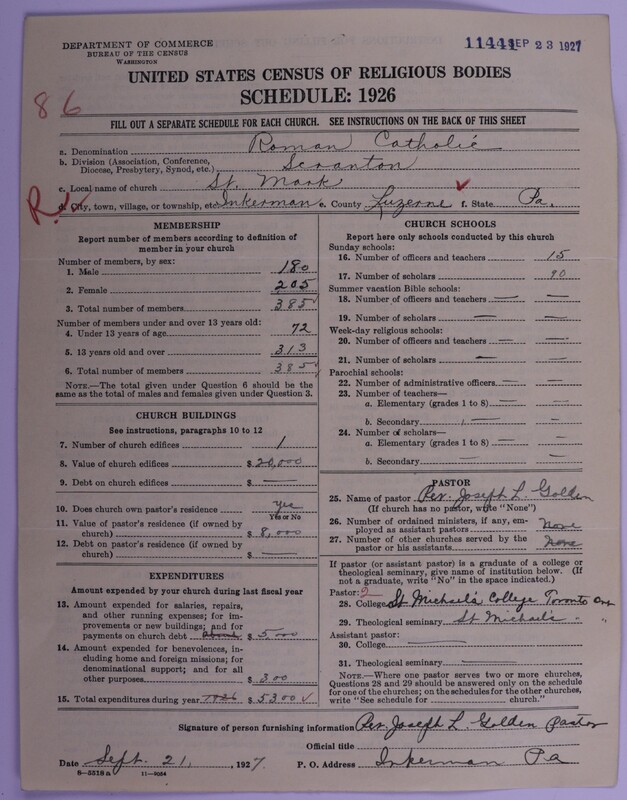 DEPARTMENT OF COMMERCE
BUREAU OF THE CENSUS
WASHINGTON
11441 SEP 23 1927
UNITED STATES CENSUS OF RELIGIOUS BODIES
SCHEDULE: 1926
86
FILL OUT A SEPARATE SCHEDULE FOR EACH CHURCH. SEE INSTRUCTIONS ON THE BACK OF THIS SHEET
a. Denomination Roman Catholic
b. Division (Association, Conference,
Diocese, Presbytery, Synod, etc.) Scranton
c. Local name of church St. Mark
R. ✓
d. City, town, village, or township, etc. Inkerman e. County Luzerne ✓ f. State Pa.
MEMBERSHIP
Report number of members according to definition of
member in your church
Number of members, by sex:
1. Male 180
2. Female 205
3. Total number of members 385 ✓
Number of members under and over 13 years old:
4. Under 13 years of age 72
5. 13 years old and over 313
6. Total number of members 385 ✓
NOTE.—The total given under Question 6 should be
the same as the total of males and females given under Question 3.
CHURCH BUILDINGS
See instructions, paragraphs 10 to 12
7. Number of church edifices 1
8. Value of church edifices $ 20,000
9. Debt on church edifices $ —
10. Does church own pastor's residence yes
Yes or No
11. Value of pastor's residence (if owned by
church) $ 8,000
12. Debt on pastor's residence (if owned by
church) $ —
EXPENDITURES
Amount expended by your church during last fiscal year
13. Amount expended for salaries, repairs,
and other running expenses; for im-
provements or new buildings; and for
payments on church debt about $ 5,000
14. Amount expended for benevolences, in-
cluding home and foreign missions; for
denominational support; and for all
other purposes $ 300
15. Total expenditures during year 1926 $ 5300 ✓
CHURCH SCHOOLS
Report here only schools conducted by this church
Sunday schools:
16. Number of officers and teachers 15
17. Number of scholars 90
Summer vacation Bible schools:
18. Number of officers and teachers — —
19. Number of scholars — —
Week-day religious schools:
20. Number of officers and teachers — —
21. Number of scholars — —
Parochial schools:
22. Number of administrative officers — —
23. Number of teachers—
a. Elementary (grades 1 to 8) — —
b. Secondary — —
24. Number of scholars—
a. Elementary (grades 1 to 8) — —
b. Secondary — —
PASTOR
25. Name of pastor Rev. Joseph L. Golden
(If church has no pastor, write "None")
26. Number of ordained ministers, if any, em-
ployed as assistant pastors None
27. Number of other churches served by the
pastor or his assistants None
If pastor (or assistant pastor) is a graduate of a college or
theological seminary, give name of institution below. (If
not a graduate, write "No" in the space indicated.)
Pastor: 2
28. College St Michael's College Toronto Ont
29. Theological seminary St Michael's " "
Assistant pastor:
30. College —
31. Theological seminary —
NOTE.—Where one pastor serves two or more churches,
Questions 28 and 29 should be answered only on the schedule
for one of the churches; on the schedules for the other churches,
write "See schedule for church."
Signature of person furnishing information Rev. Joseph L. Golden Pastor
Official title
Date Sept. 21, 1927 P. O. Address Inkerman Pa
8—5518 a 11—9054